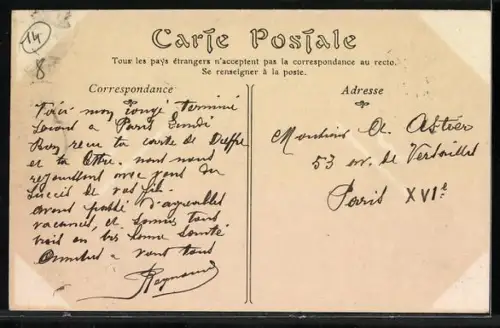 14
8
Carte Postale
Tous les pays étrangers n'acceptent pas la correspondance au recto.
Se renseigner à la poste.
Correspondance
Voici mon congé terminé
serons à Paris Lundi
Bien reçu ta carte de
et ta lettre. nous nous
réjouissons avec vous du
succès de vos
avons passé d'agréables
vacances, et sommes tous
trois en très bonne santé
Amitiés à vous tous
Raymond
Adresse
Monsieur A. Astier
53 av. de Versailles
Paris XVIe